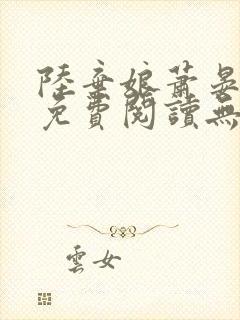 陸棄娘蕭晏
免費閱讀無
雲女